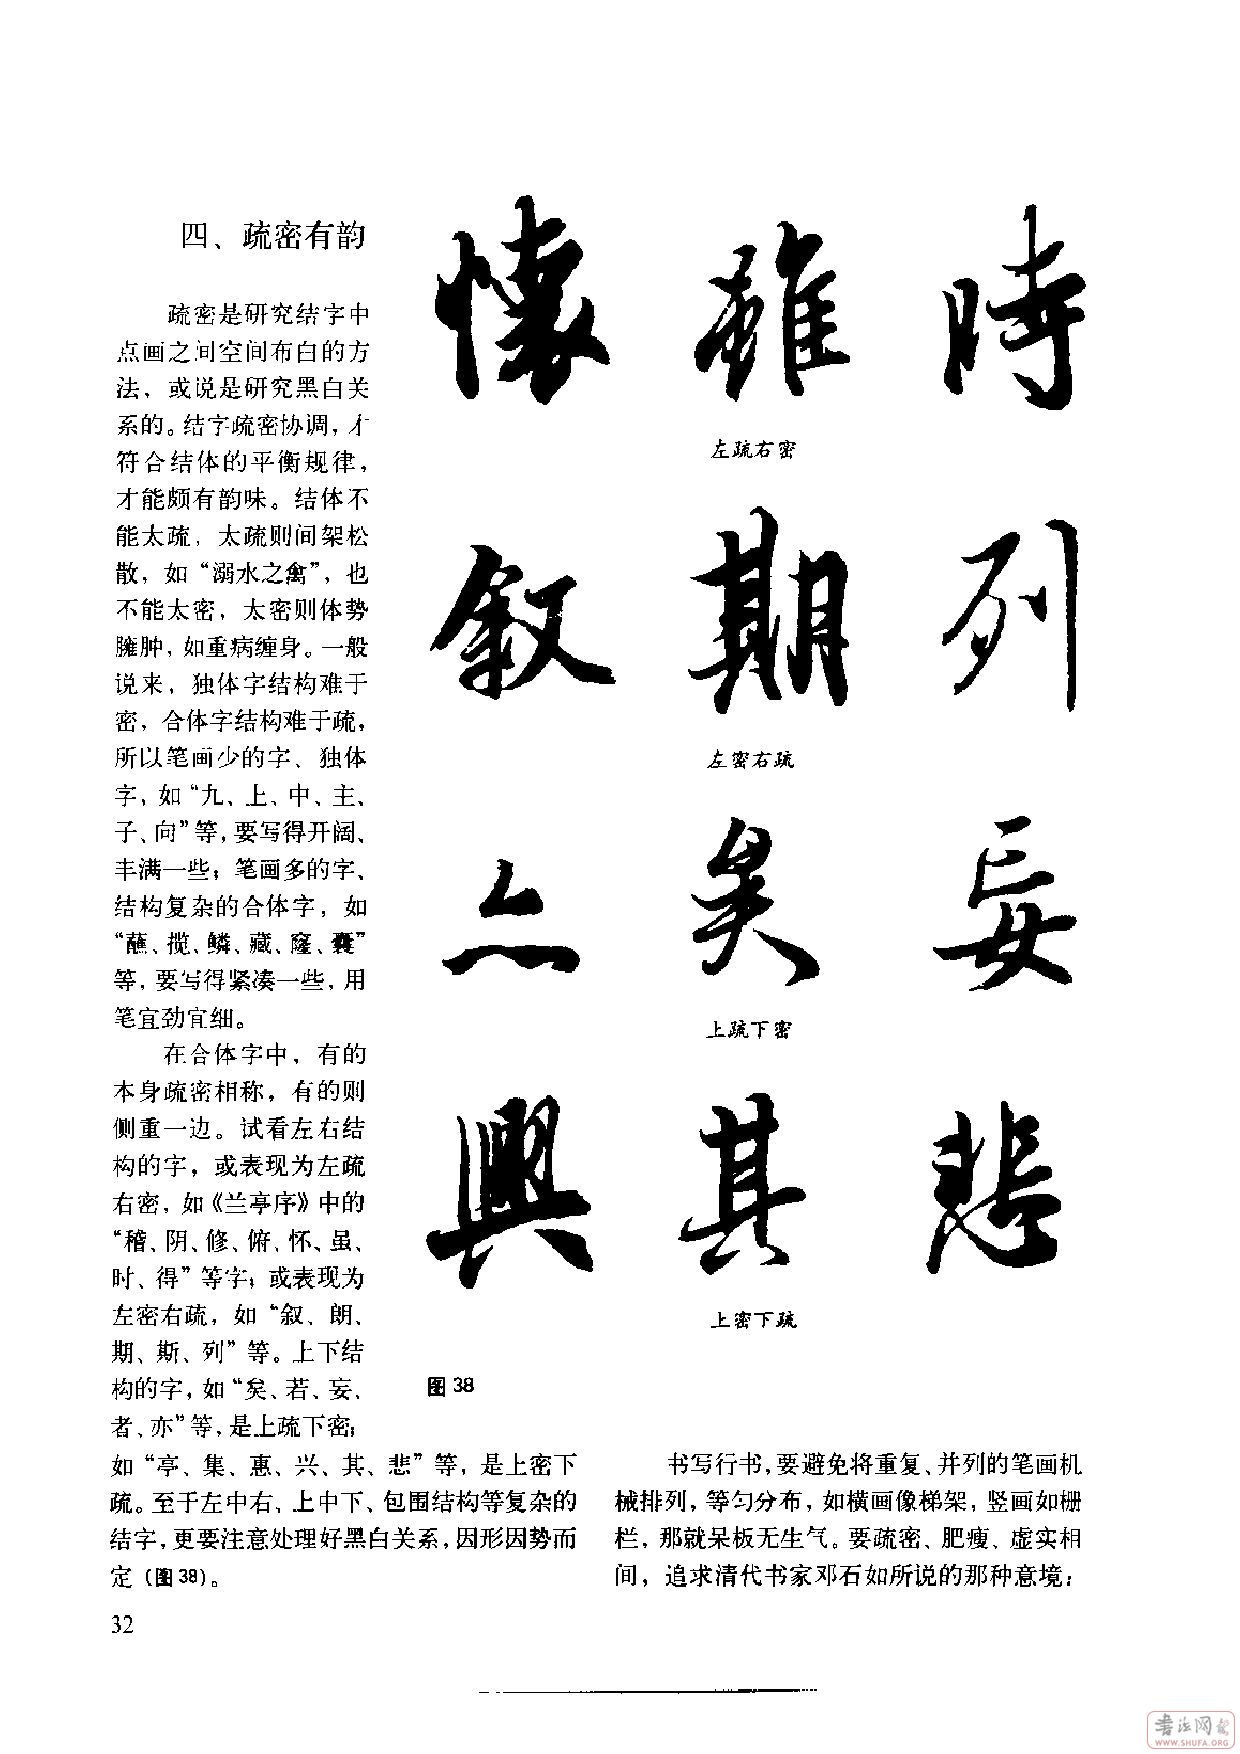 四、疏密有韵
疏密是研究结字中
点画之间空间布白的方
法，或说是研究黑白关
系的。结字疏密协调，才
符合结体的平衡规律，
才能颇有韵味。结体不
能太疏，太疏则间架松
散，如“溺水之禽”，也
不能太密，太密则体势
臃肿，如重病缠身。一般
说来，独体字结构难于
密，合体字结构难于疏，
所以笔画少的字、独体
字，如“九、上、中、主、
子、向”等，要写得开阔、
丰满一些；笔画多的字、
结构复杂的合体字，如
“蘸、揽、鳞、藏、窿、囊”
等，要写得紧凑一些，用
笔宜劲宜细。
在合体字中，有的
本身疏密相称，有的则
侧重一边。试看左右结
构的字，或表现为左疏
右密，如《兰亭序》中的
“稽、阴、修、俯、怀、虽、
时、得”等字；或表现为
左密右疏，如“叙、朗、
期、斯、列”等。上下结
构的字，如“矣、若、妄、
者、亦”等，是上疏下密；
如“亭、集、惠、兴、其、悲”等，是上密下
疏。至于左中右、上中下、包围结构等复杂的
结字，更要注意处理好黑白关系，因形因势而
定（图38）。
懷 雖 時
左疏右密
叙 期 列
左密右疏
亠 矣 妄
上疏下密
興 其 悲
上密下疏
图38
书写行书，要避免将重复、并列的笔画机
械排列，等匀分布，如横画像梯架，竖画如栅
栏，那就呆板无生气。要疏密、肥瘦、虚实相
间，追求清代书家邓石如所说的那种意境：
32
书法网
WWW.SHUFA.ORG